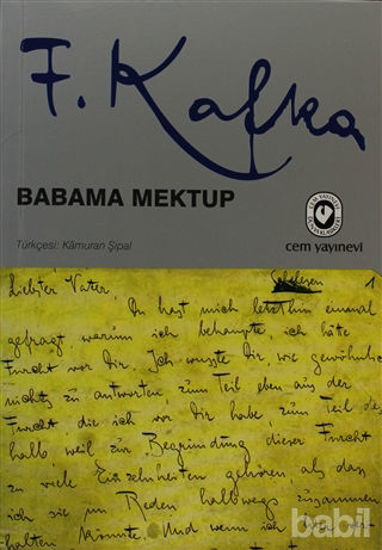 F. Kafka
BABAMA MEKTUP
Türkçesi: Kâmuran Şipal
CEM YAYINEVİ
cem yayınevi
Schelesen 1
Liebster Vater,
Du hast mich letzthin einmal
gefragt, warum ich behaupte, ich hätte
Furcht vor Dir. Ich wusste Dir, wie gewöhnlich
nichts zu antworten, zum Teil eben aus der
Furcht die ich vor Dir habe, zum Teil des
halb weil zur Begründung dieser Furcht
zu viele Einzelnheiten gehören, als dass
ich sie im Reden halbwegs zusammen
halten könnte. Und wenn ich
babil